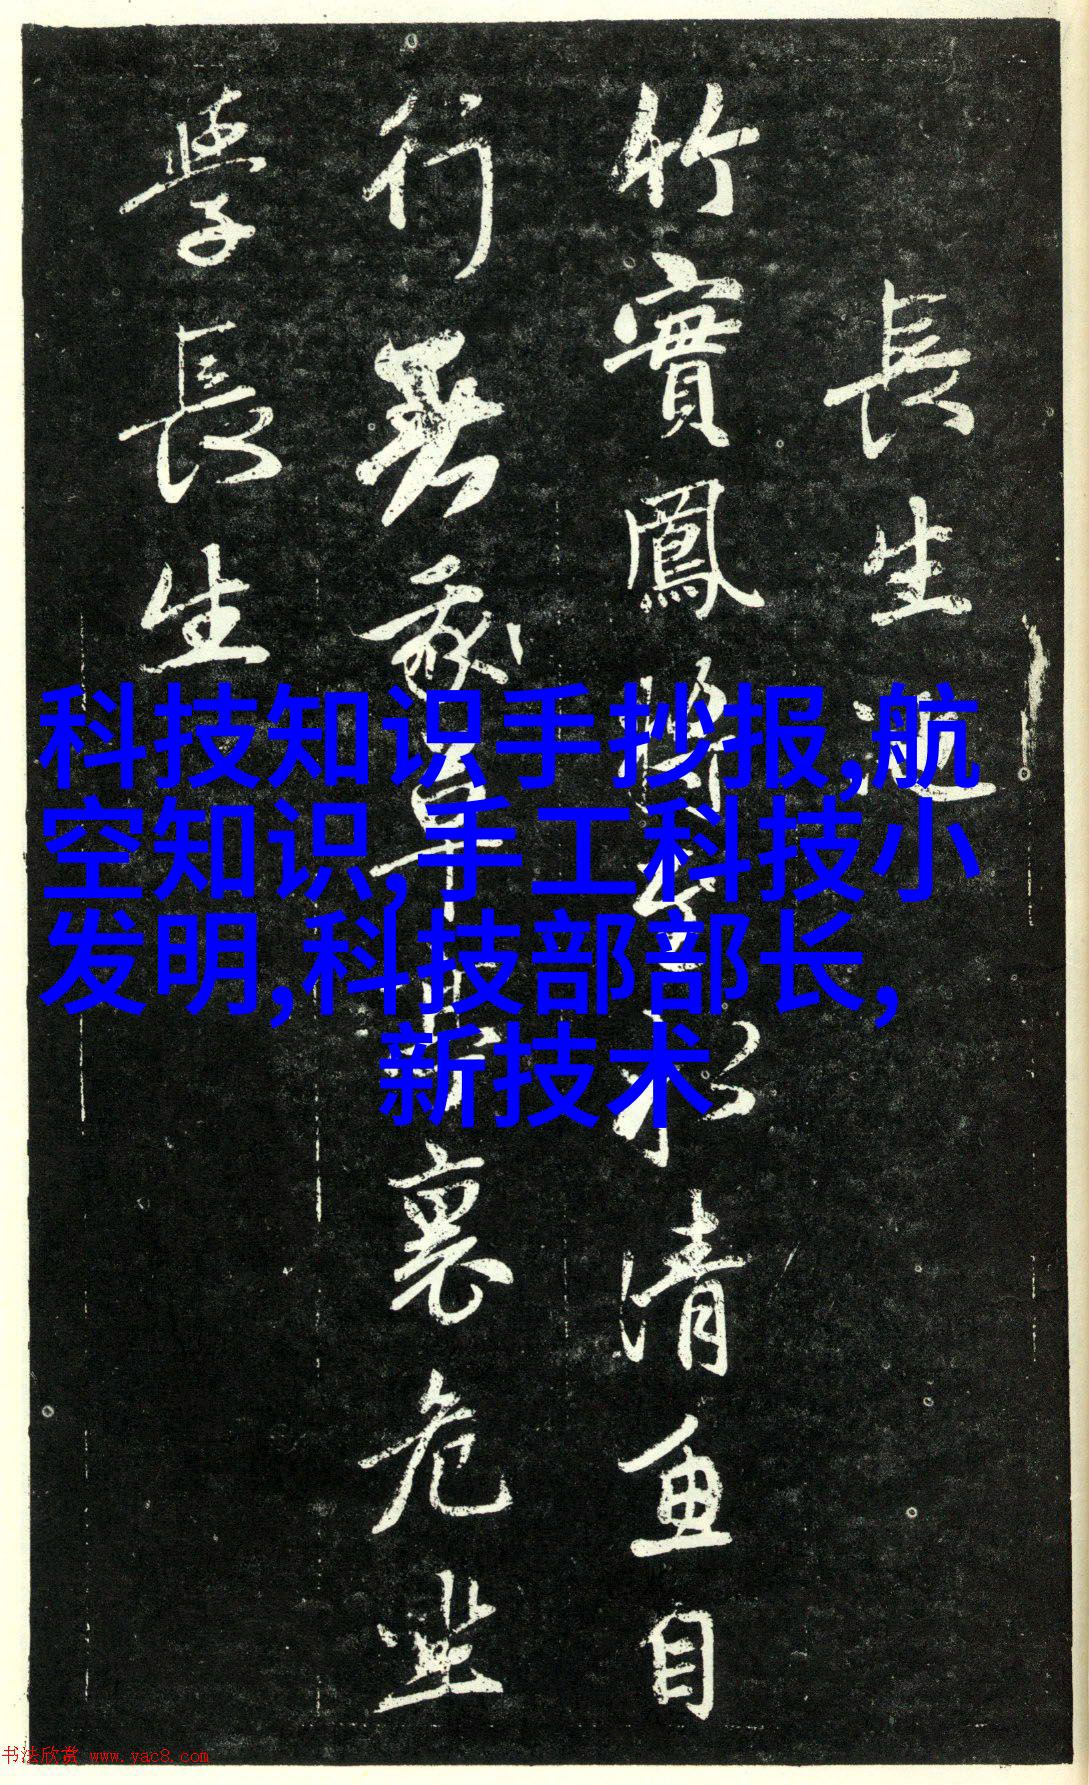 長生
竹實鳳將至水清魚自
行家草堂裏危坐
學長生
科技知识手抄报,航
空知识,手工科技小
发明,科技部部长,
新技术
书法欣赏 www.yac8.com